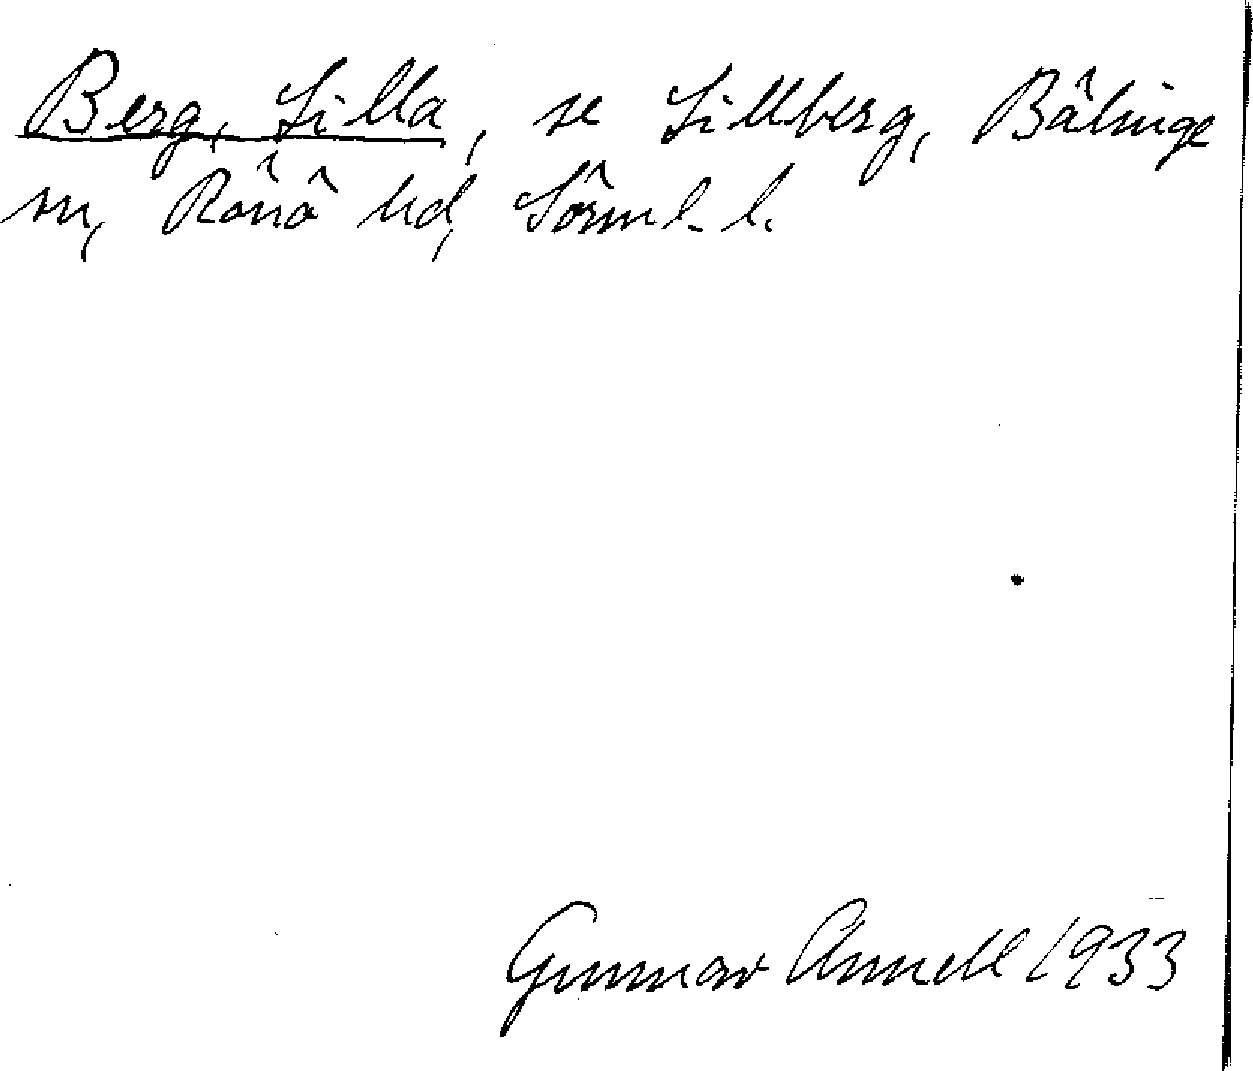 Berg, Lilla, se Lillberg, Bälinge
sn, Rönö hd, Sörml. l.
Gunnar Annell 1933